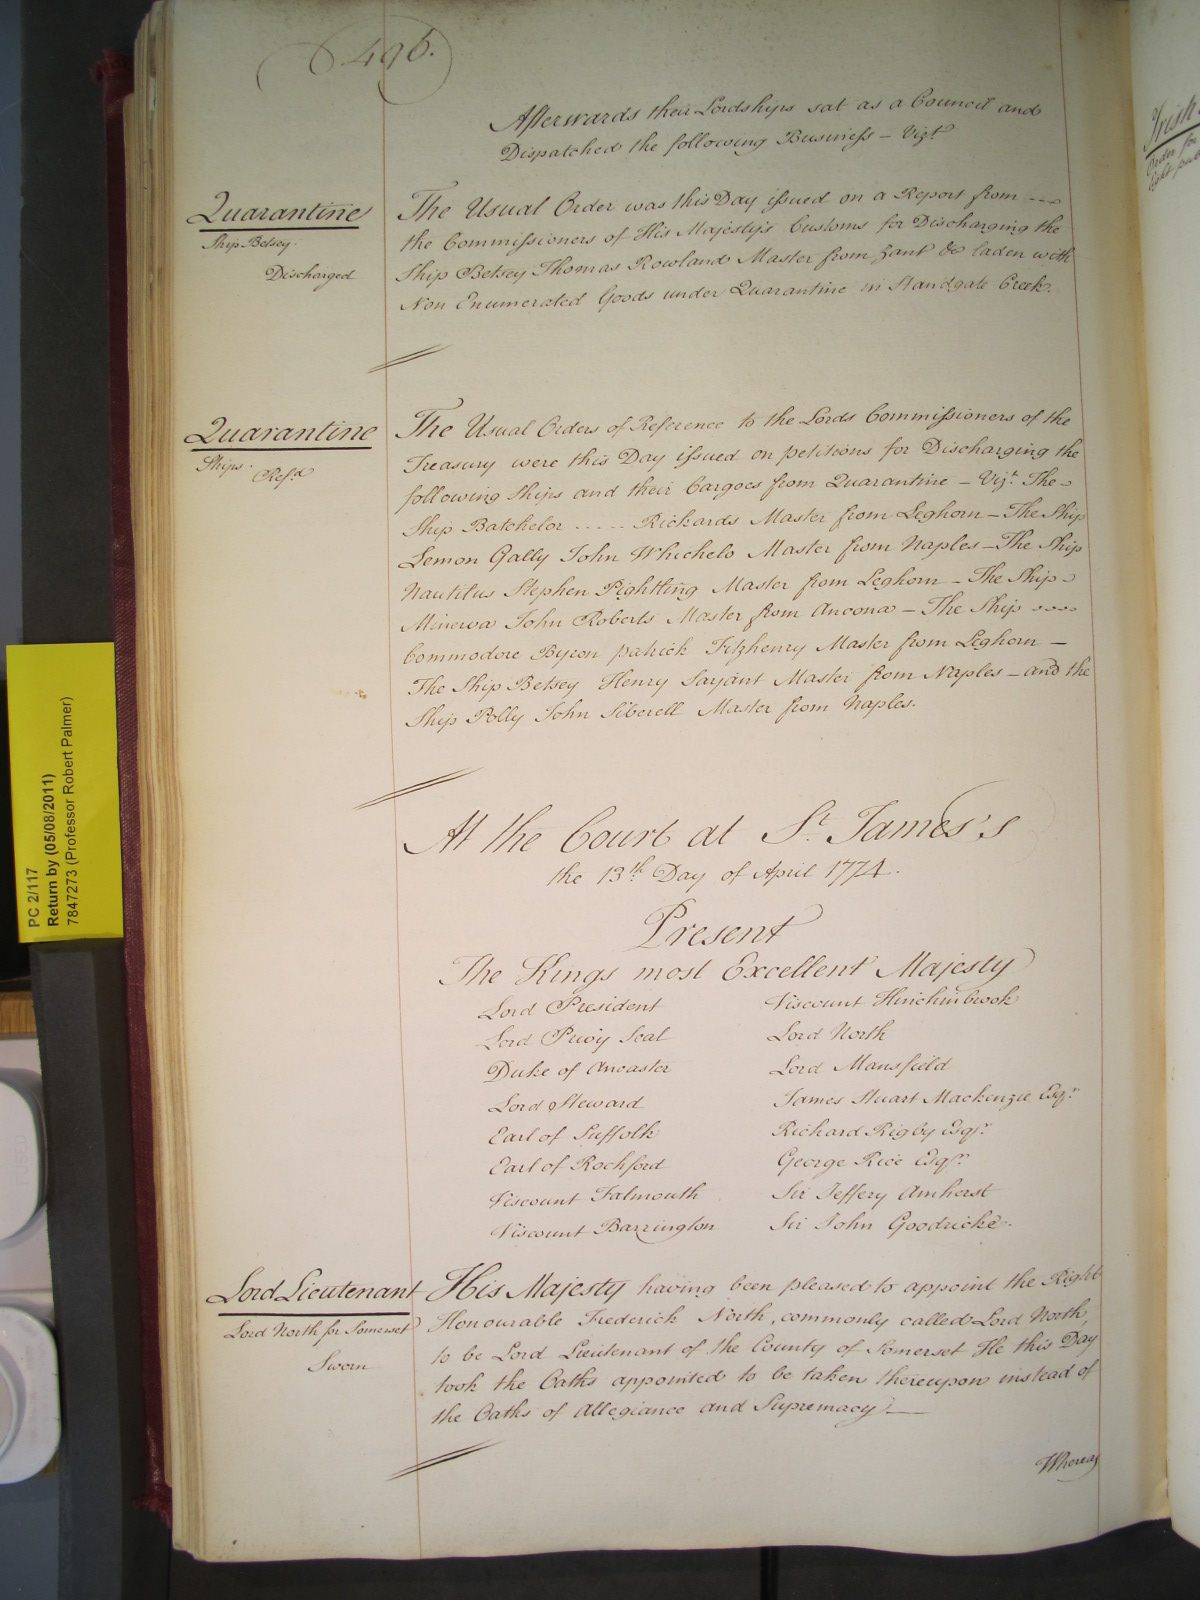 496.
Afterwards their Lordships sat as a Council and
Dispatched the following Business – Vizt
Quarantine
Ship Betsey.
Discharged
The Usual Order was this Day issued on a Report from ---
the Commissioners of His Majesty's Customs for Discharging the
Ship Betsey Thomas Rowland Master from Zant &c laden with
Non Enumerated Goods under Quarantine in Standgate Creek.
Quarantine
Ships.
Refd
The Usual Orders of Reference to the Lords Commissioners of the
Treasury were this Day issued on petitions for Discharging the
following Ships and their Cargoes from Quarantine – Vizt. The
Ship Batchelor ..... Rickards Master from Leghorn – The Ship
Lemon Gally John Whichelo Master from Naples – The Ship
Nautilus Stephen Pightling Master from Leghorn – The Ship
Minerva John Roberts Master from Ancona – The Ship
Commodore Byron patrick Fitzhenry Master from Leghorn –
The Ship Betsey Henry Sarjant Master from Naples – and the
Ship Polly John Siberell Master from Naples.
At the Court at St. James's
the 13th. Day of April 1774.
Present
The Kings most Excellent Majesty
Lord President
Lord Privy Seal
Duke of Ancaster
Lord Steward
Earl of Suffolk
Earl of Rochford
Viscount Falmouth
Viscount Barrington
Viscount Hinchinbrook
Lord North
Lord Mansfield
James Stuart Mackenzie Esqr.
Richard Rigby Esqr.
George Rice Esqr.
Sir Jeffery Amherst
Sir John Goodricke.
Lord Lieutenant
Lord North for Somerset
Sworn
His Majesty having been pleased to appoint the Right
Honourable Frederick North, commonly called Lord North,
to be Lord Lieutenant of the County of Somerset He this Day
took the Oaths appointed to be taken thereupon instead of
the Oaths of Allegiance and Supremacy –
Whereas
Irish
Order for
PC 2/117
Return by (05/08/2011)
7847273 (Professor Robert Palmer)